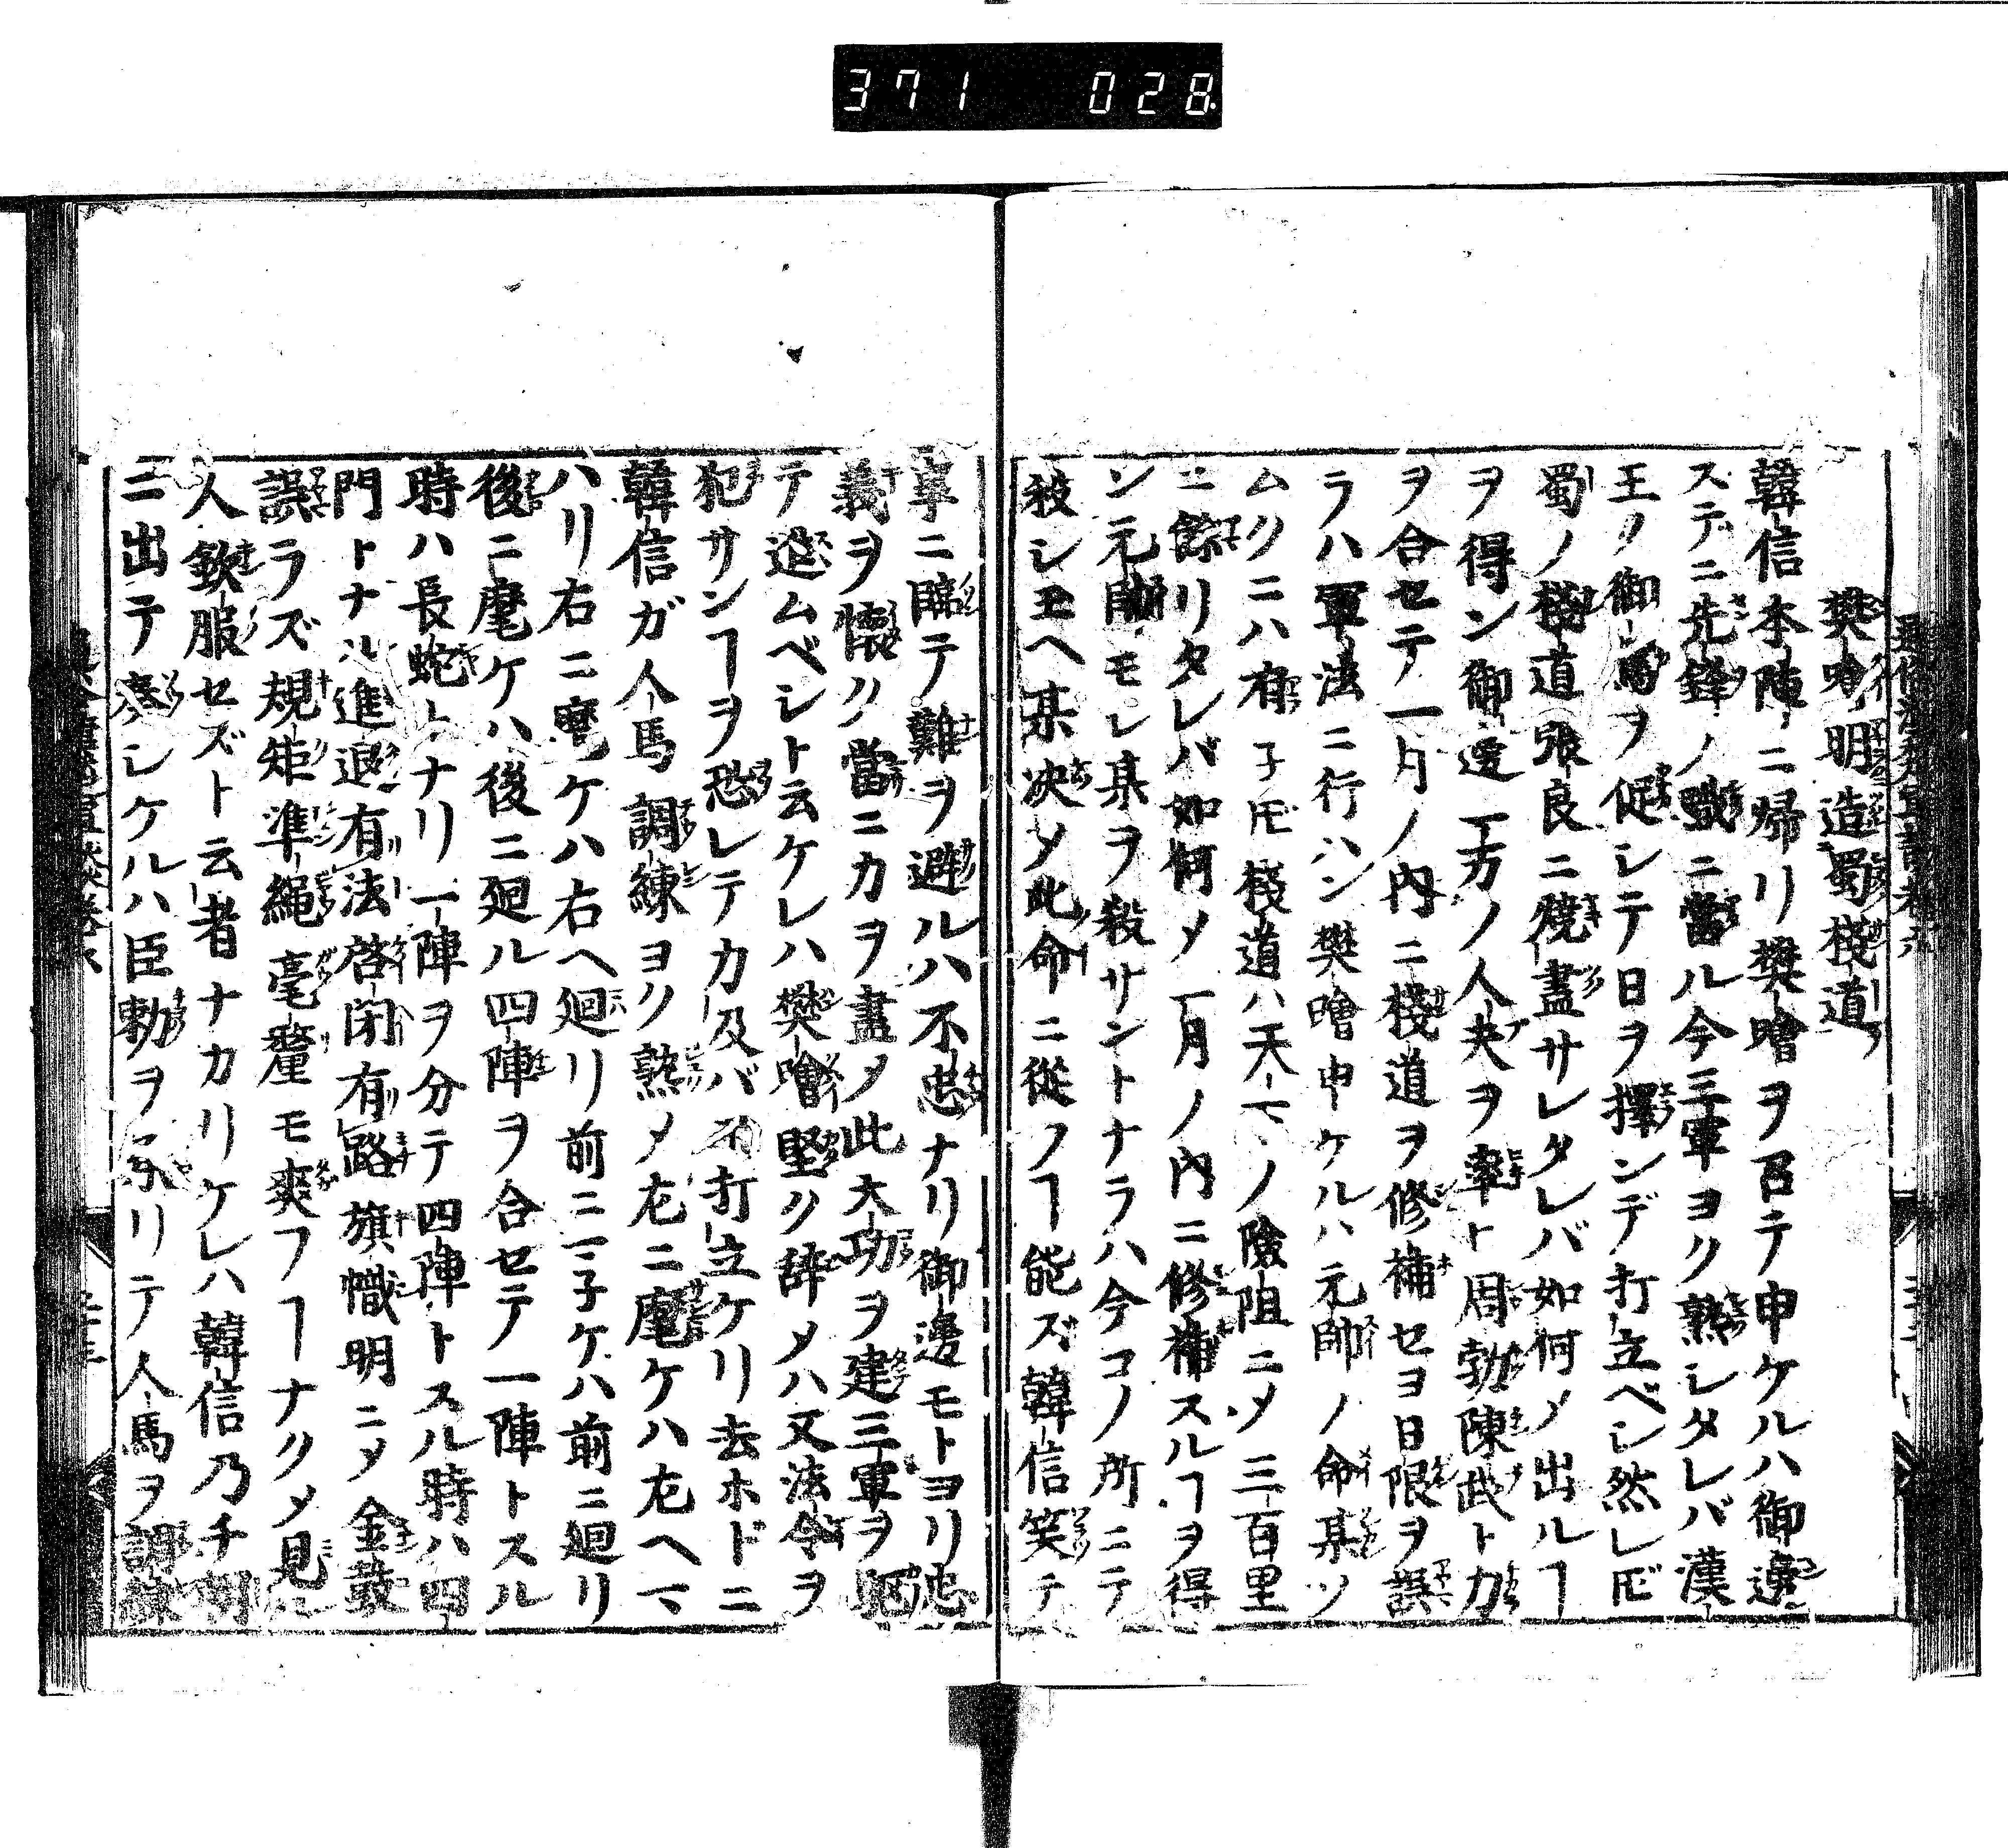 371 028
樊噲明造蜀棧道
韓信本陣ニ帰リ樊噲ヲ召テ申ケルハ御邊
ステニ先鋒ノ職ニ當ル今三軍ヨク熟シタレバ漢
王ノ御馬ヲ促シテ日ヲ擇ンデ打立ベシ然レ𪜈
蜀ノ棧道張良ニ燒盡サレタレバ如何メ出ルヿ
ヲ得ン御邊一万ノ人夫ヲ率ト周勃陳武ト力
ヲ合セテ一月ノ内ニ棧道ヲ修補セヨ日限ヲ誤
ラハ軍法ニ行ハン樊噲申ケルハ元帥ノ命某ソ
ムクニハ有子𪜈棧道ハ天下ノ險阻ニメ三百里
ニ餘リタレバ如何メ一月ノ内ニ修補スルヿヲ得
ン元帥モシ某ヲ殺サントナラハ今コノ所ニテ
殺シ玉ヘ某决メ此命ニ從フヿ能ズ韓信笑テ
事ニ臨テ難ヲ避ルハ不忠ナリ御邊モトヨリ忠
義ヲ懐ク當ニカヲ盡メ此大功ヲ建三軍ヲ
テ進ムベシト云ケレハ樊噲堅ク辞メハ又法令ヲ
犯サンヿヲ恐レテ力及バ不打立ケリ去ホドニ
韓信ガ人馬調練ヨク熟メ左ニ麾ケハ左ヘマ
ハリ右ニ麾ケハ右ヘ廻リ前ニ一子ケハ前ニ廻リ
後ニ麾ケハ後ニ廻ル四陣ヲ合セテ一陣トスル
時ハ長蛇トナリ一陣ヲ分テ四陣トスル時ハ四
門トナル進退有法啓閉有路旗幟明ニメ金鼓
誤ラズ規矩準繩毫釐モ爽フヿナクメ見
人歎服セズト云者ナカリケレハ韓信乃チ朝
ニ出テ奏シケルハ臣勅ヲ承リテ人馬ヲ調練